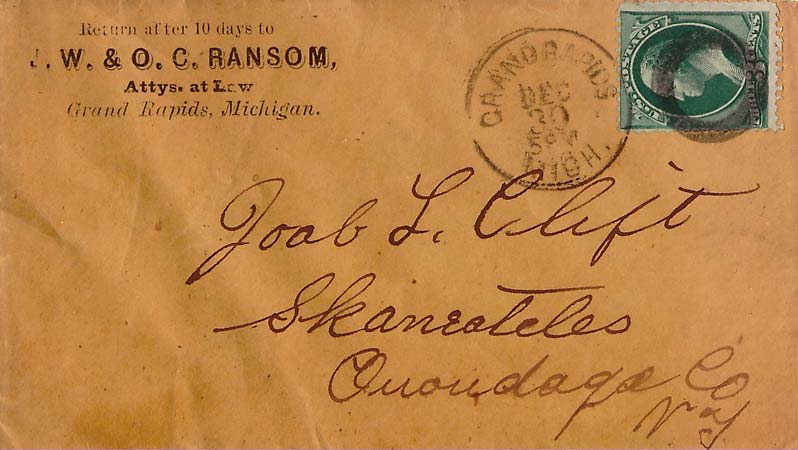 Return after 10 days to
J. W. & O. C. RANSOM,
Attys. at Law
Grand Rapids, Michigan.
GRAND RAPIDS
DEC
20
MICH.
U.S. POSTAGE
THREE 3 CENTS
Joab L. Clift
Skaneateles
Onondaga Co
N Y